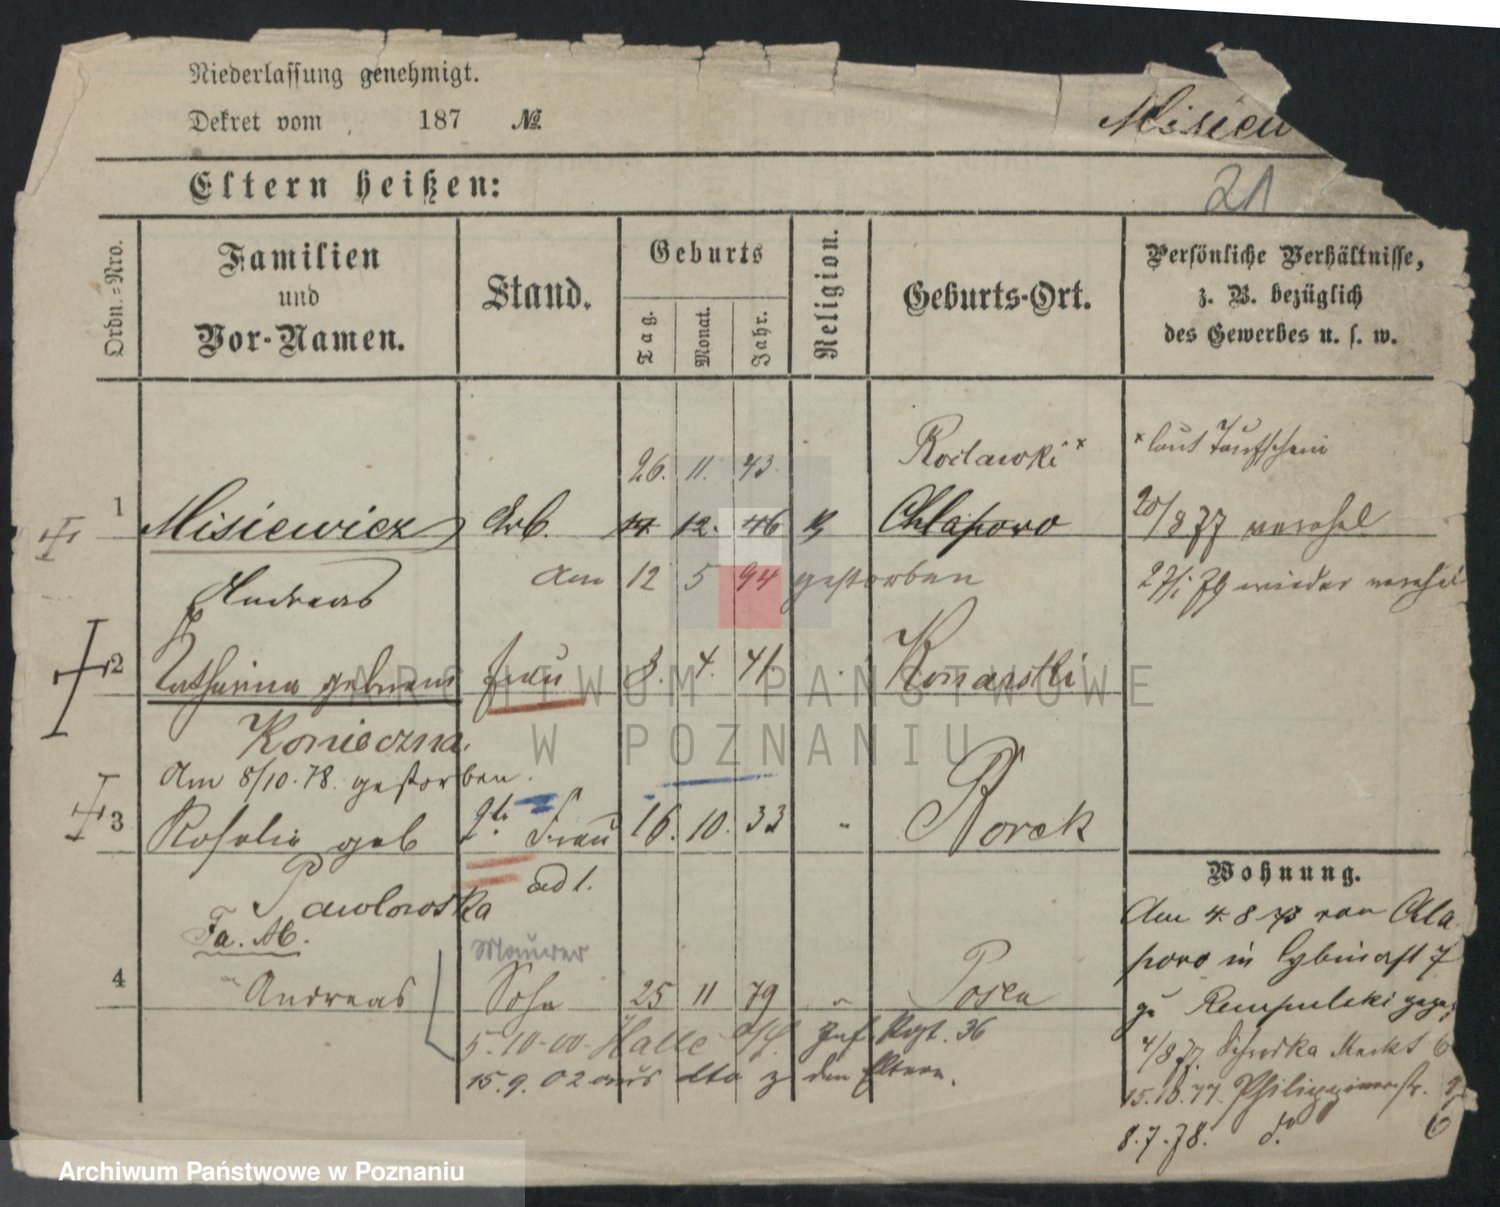 Niederlassung genehmigt.
Dekret vom 187 №
Misiew
21
Eltern heißen:
Ordn.-Nro.
Familien
und
Vor-Namen.
Stand.
Geburts
Tag.
Monat.
Jahr.
Religion.
Geburts-Ort.
Persönliche Verhältnisse,
z. B. bezüglich
des Gewerbes u. s. w.
26. 11. 43. × × laut Taufschein
1 Misiewicz Arb. 14 12. 46 k Chlapowo 20/8 77 verehel
Andreas am 12 5 94 gestorben 27/1 79 wieder verehel
2 Katharina geborne Frau 8. 4. 41. Konarski
Konieczna.
Am 8/10.78. gestorben.
3 Rosalie geb 2te Frau 16. 10. 33 " Borek
ad 1.
Pawlowska
Fa. Ab.
Maurer
4 Andreas Sohn 25 11 79 " Posen
5.10.00 Halle Inf. Rgt. 36
15.9.02 aus dto z den Eltern.
Wohnung.
Am 4.8 73 von Chla
powo in 7
zu
4/8 77. Schrodka Markt 6
15.10.77. Philippinerstr.
8.7.78. d. 6
ARCHIWUM PAŃSTWOWE
W POZNANIU
Archiwum Państwowe w Poznaniu